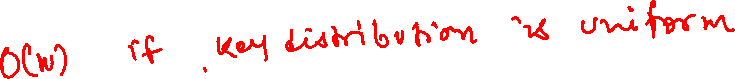 O(N) if key distribution is uniform